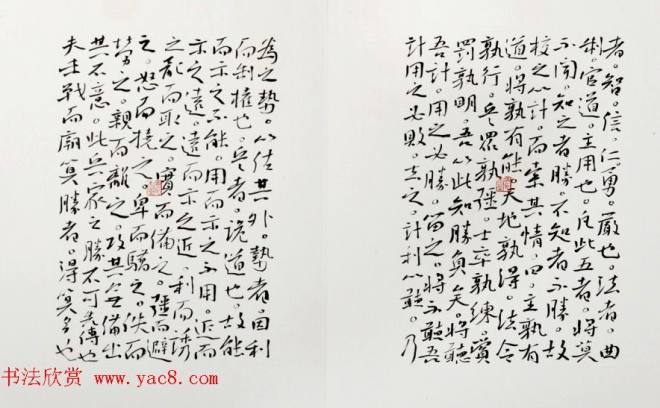 者。智。信。仁。勇。嚴也。法者。曲
制。官道。主用也。凡此五者。將莫
不聞。知之者勝。不知者不勝。故
校之以計。而索其情。曰。主孰有
道。將孰有能。天地孰得。法令
孰行。兵眾孰彊。士卒孰練。賞
罰孰明。吾以此知勝負矣。將聽
吾計。用之必勝。留之。將不聽吾
計用之必敗。去之。計利以聽。乃
為之勢。以佐其外。勢者。因利
而制權也。兵者。詭道也。故能
而示之不能。用而示之不用。近而
示之遠。遠而示之近。利而誘
之。亂而取之。實而備之。彊而避
之。怒而撓之。卑而驕之。佚而
勞之。親而離之。攻其無備。出
其不意。此兵家之勝。不可先傳也
夫未戰而廟算勝者。得算多也
书法欣赏 www.yac8.com